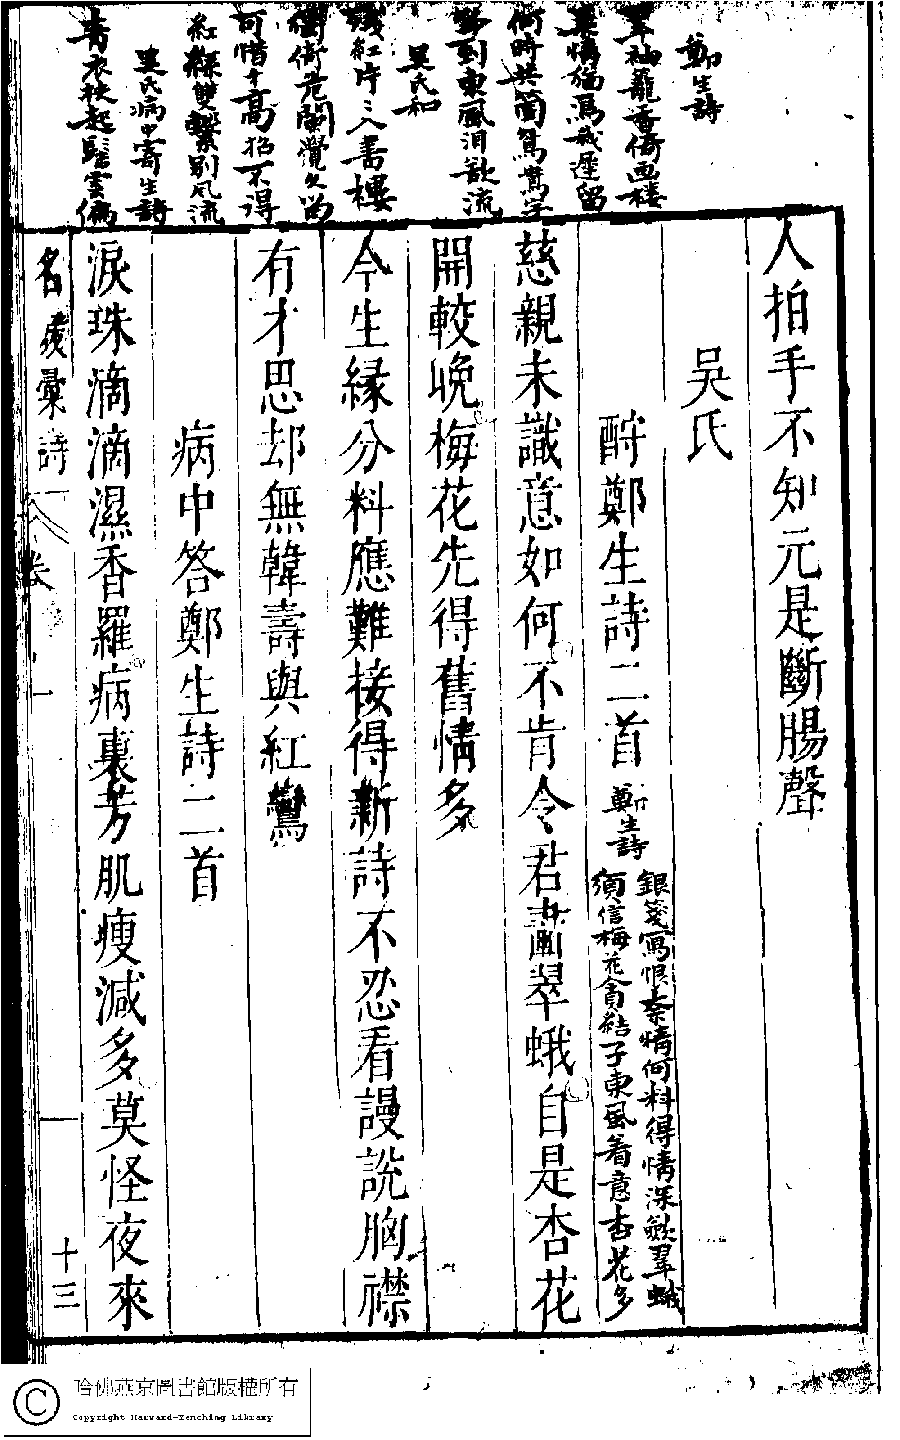 鄭生詩
翠袖籠香倚畫樓
柔情猶為我遲留
何時共箇鴛鴦字
吳氏和
殘紅片片入書樓
可惜才高招不得
紅絲雙繫別風流
吳氏病中寄生詩
青衣扶起髩雲偏
人拍手不知元是斷腸聲
吳氏
酧鄭生詩二首
鄭生詩
銀箋寫恨柰情何料得情深歛翠蛾
須信梅花貪結子東風着意杏花多
慈親未識意如何不肯令君畵翠蛾自是杏花
開較晚梅花先得舊情多
今生緣分料應難接得新詩不忍看謾說胸襟
有才思却無韓壽與紅鸞
病中答鄭生詩二首
淚珠滴滴濕香羅病裏芳肌瘦減多莫怪夜來
名媛彙詩
卷
十三
哈佛燕京圖書館版權所有
Copyright Harvard-Yenching Library